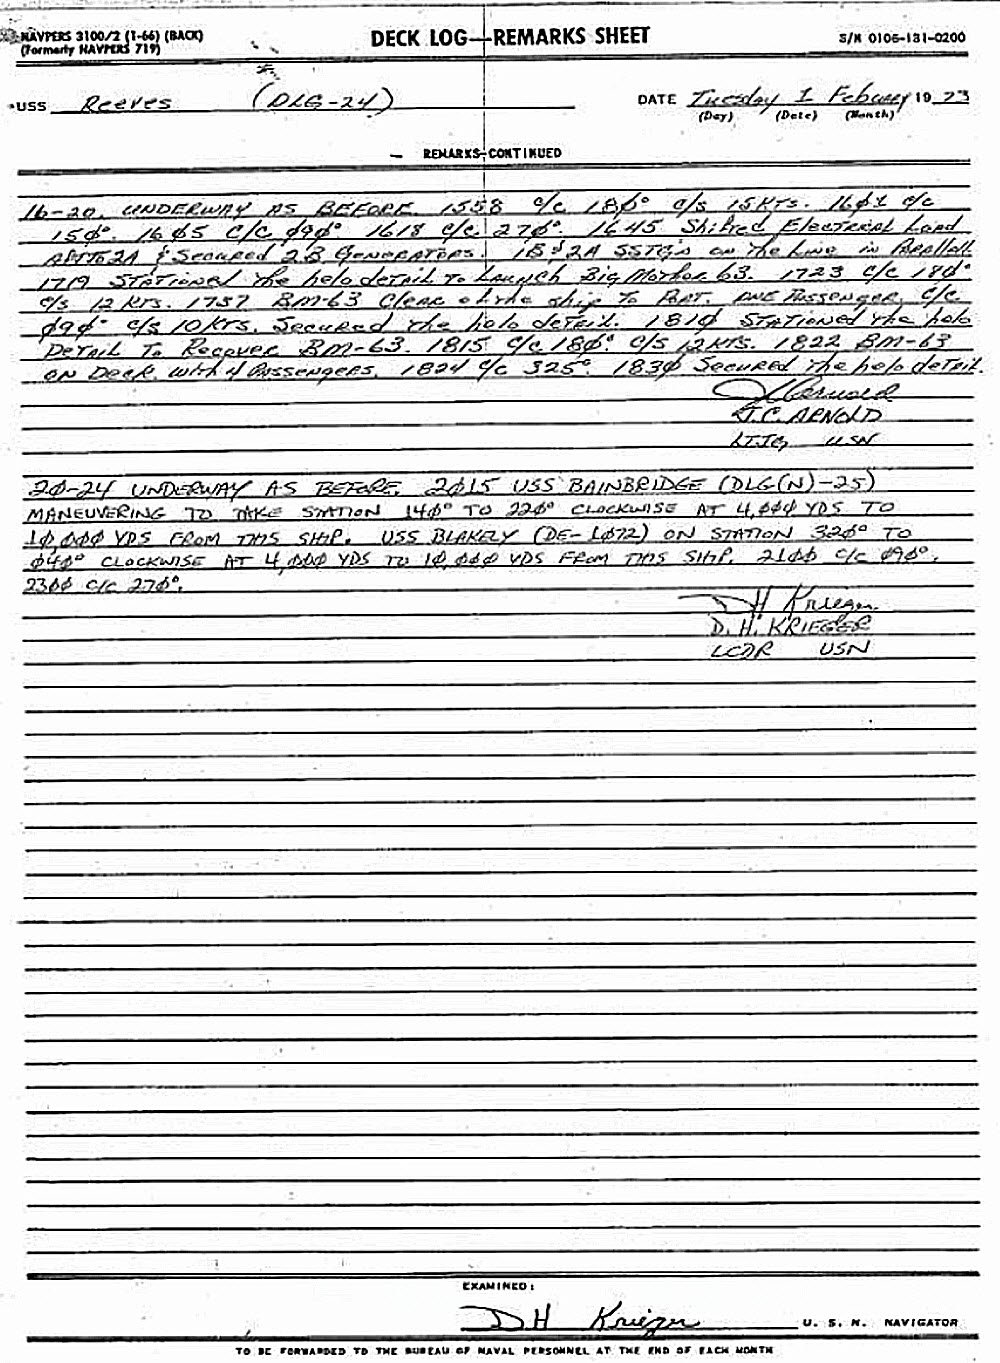 NAVPERS 3100/2 (1-66) (BACK)
(Formerly NAVPERS 719)
DECK LOG—REMARKS SHEET
S/N 0106-131-0200
USS Reeves (DLG-24)
DATE Tuesday 1 Febuary 19 73
(Day) (Date) (Month)
REMARKS-CONTINUED
16-20. UNDERWAY AS BEFORE 1558 c/c 18ø° c/s 15 KTS. 16ø1 c/c
15ø°. 16ø5 c/c ø9ø° 1618 c/c 27ø°. 1645 Shifted Electrical Load
2A & Secured 2B Generators. 1B & 2A SSTG's on the Line in Parallell
1719 STATIONED The helo detail To Launch Big Mother 63. 1723 c/c 18ø°
c/s 12 KTS. 1737 BM-63 Clear of the ship To Port. ONE Passenger. c/c
ø9ø° c/s 10 KTS. Secured the helo detail. 181ø STATIONED The helo
Detail To Recover BM-63. 1815 c/c 18ø°. c/s 12 KTS. 1822 BM-63
ON Deck. with 4 Passengers. 1824 c/c 325°. 183ø Secured The helo detail.
J.C. ARNOLD
LTJG USN
2ø-24 UNDERWAY AS BEFORE. 2ø15 USS BAINBRIDGE (DLG(N)-25)
MANEUVERING TO TAKE STATION 14ø° TO 22ø° CLOCKWISE AT 4,øøø YDS TO
1ø,øøø YDS FROM THIS SHIP. USS BLAKELY (DE-1ø72) ON STATION 32ø° TO
ø4ø° CLOCKWISE AT 4,øøø YDS TO 1ø,øøø YDS FROM THIS SHIP. 21øø c/c ø9ø°.
23øø c/c 27ø°.
D H Krieger
D. H. KRIEGER
LCDR USN
EXAMINED:
D H Krieger U. S. N. NAVIGATOR
TO BE FORWARDED TO THE BUREAU OF NAVAL PERSONNEL AT THE END OF EACH MONTH